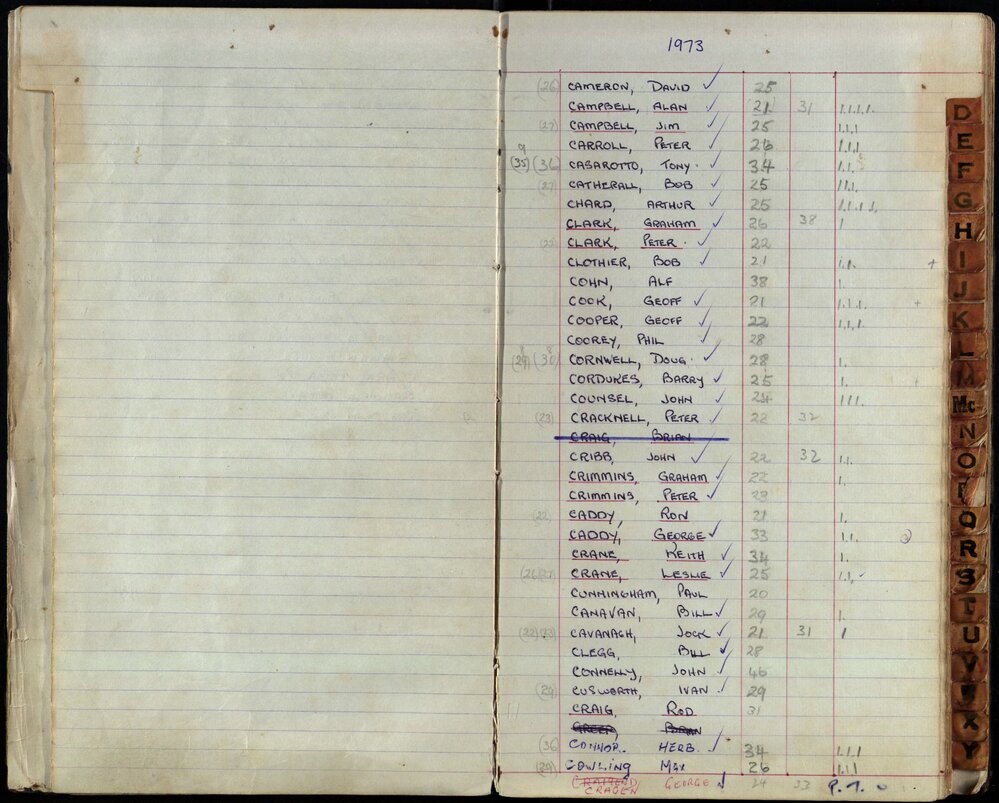 1973
(26) CAMERON, DAVID ✓ 25
CAMPBELL, ALAN ✓ 21 31 1.1.1.1.
(27) CAMPBELL, JIM ✓ 25 1.1.1
CARROLL, PETER ✓ 26 1.1.1
(35) (36) CASAROTTO, TONY. ✓ 34 1.1.
(27) CATHERALL, BOB ✓ 25 1.1.1.
CHARD, ARTHUR ✓ 25 1.1.1.1.
CLARK, GRAHAM ✓ 26 38 1
CLARK, PETER. ✓ 22
CLOTHIER, BOB ✓ 21 1.1. +
COHN, ALF 38 1.
COOK, GEOFF ✓ 21 1.1.1. +
COOPER, GEOFF ✓ 22 1.1.1.
COOREY, PHIL ✓ 28
(29) (30) CORNWELL, DOUG. ✓ 28 1.
CORDUKES, BARRY ✓ 25 1.
COUNSEL, JOHN ✓ 24 1.1.1.
(23) CRACKNELL, PETER ✓ 22 32
CRAIG, BRIAN
CRIBB, JOHN ✓ 22 32 1.1.
CRIMMINS, GRAHAM ✓ 22 1.
CRIMMINS, PETER ✓ 23
(22) CADDY, RON 21 1.
CADDY, GEORGE ✓ 33 1.1.
CRANE, KEITH ✓ 34 1.
CRANE, LESLIE ✓ 25 1.1.
CUNNINGHAM, PAUL 20
CANAVAN, BILL ✓ 29 1.
CAVANAGH, JOCK ✓ 21 31 1
CLEGG, BILL ✓ 28
CONNELLY, JOHN ✓ 46
(29) CUSWORTH, IVAN ✓ 29
CRAIG, ROD 31
(36) CONNOR.. HERB. ✓ 34 1.1.1
(29) COWLING MAX 26 1.1.1
CRAVEN GEORGE ✓ 24 33 P.T.O
D
E
F
G
H
I
J
K
L
M
Mc
N
O
P
Q
R
S
T
U
V
W
X
Y